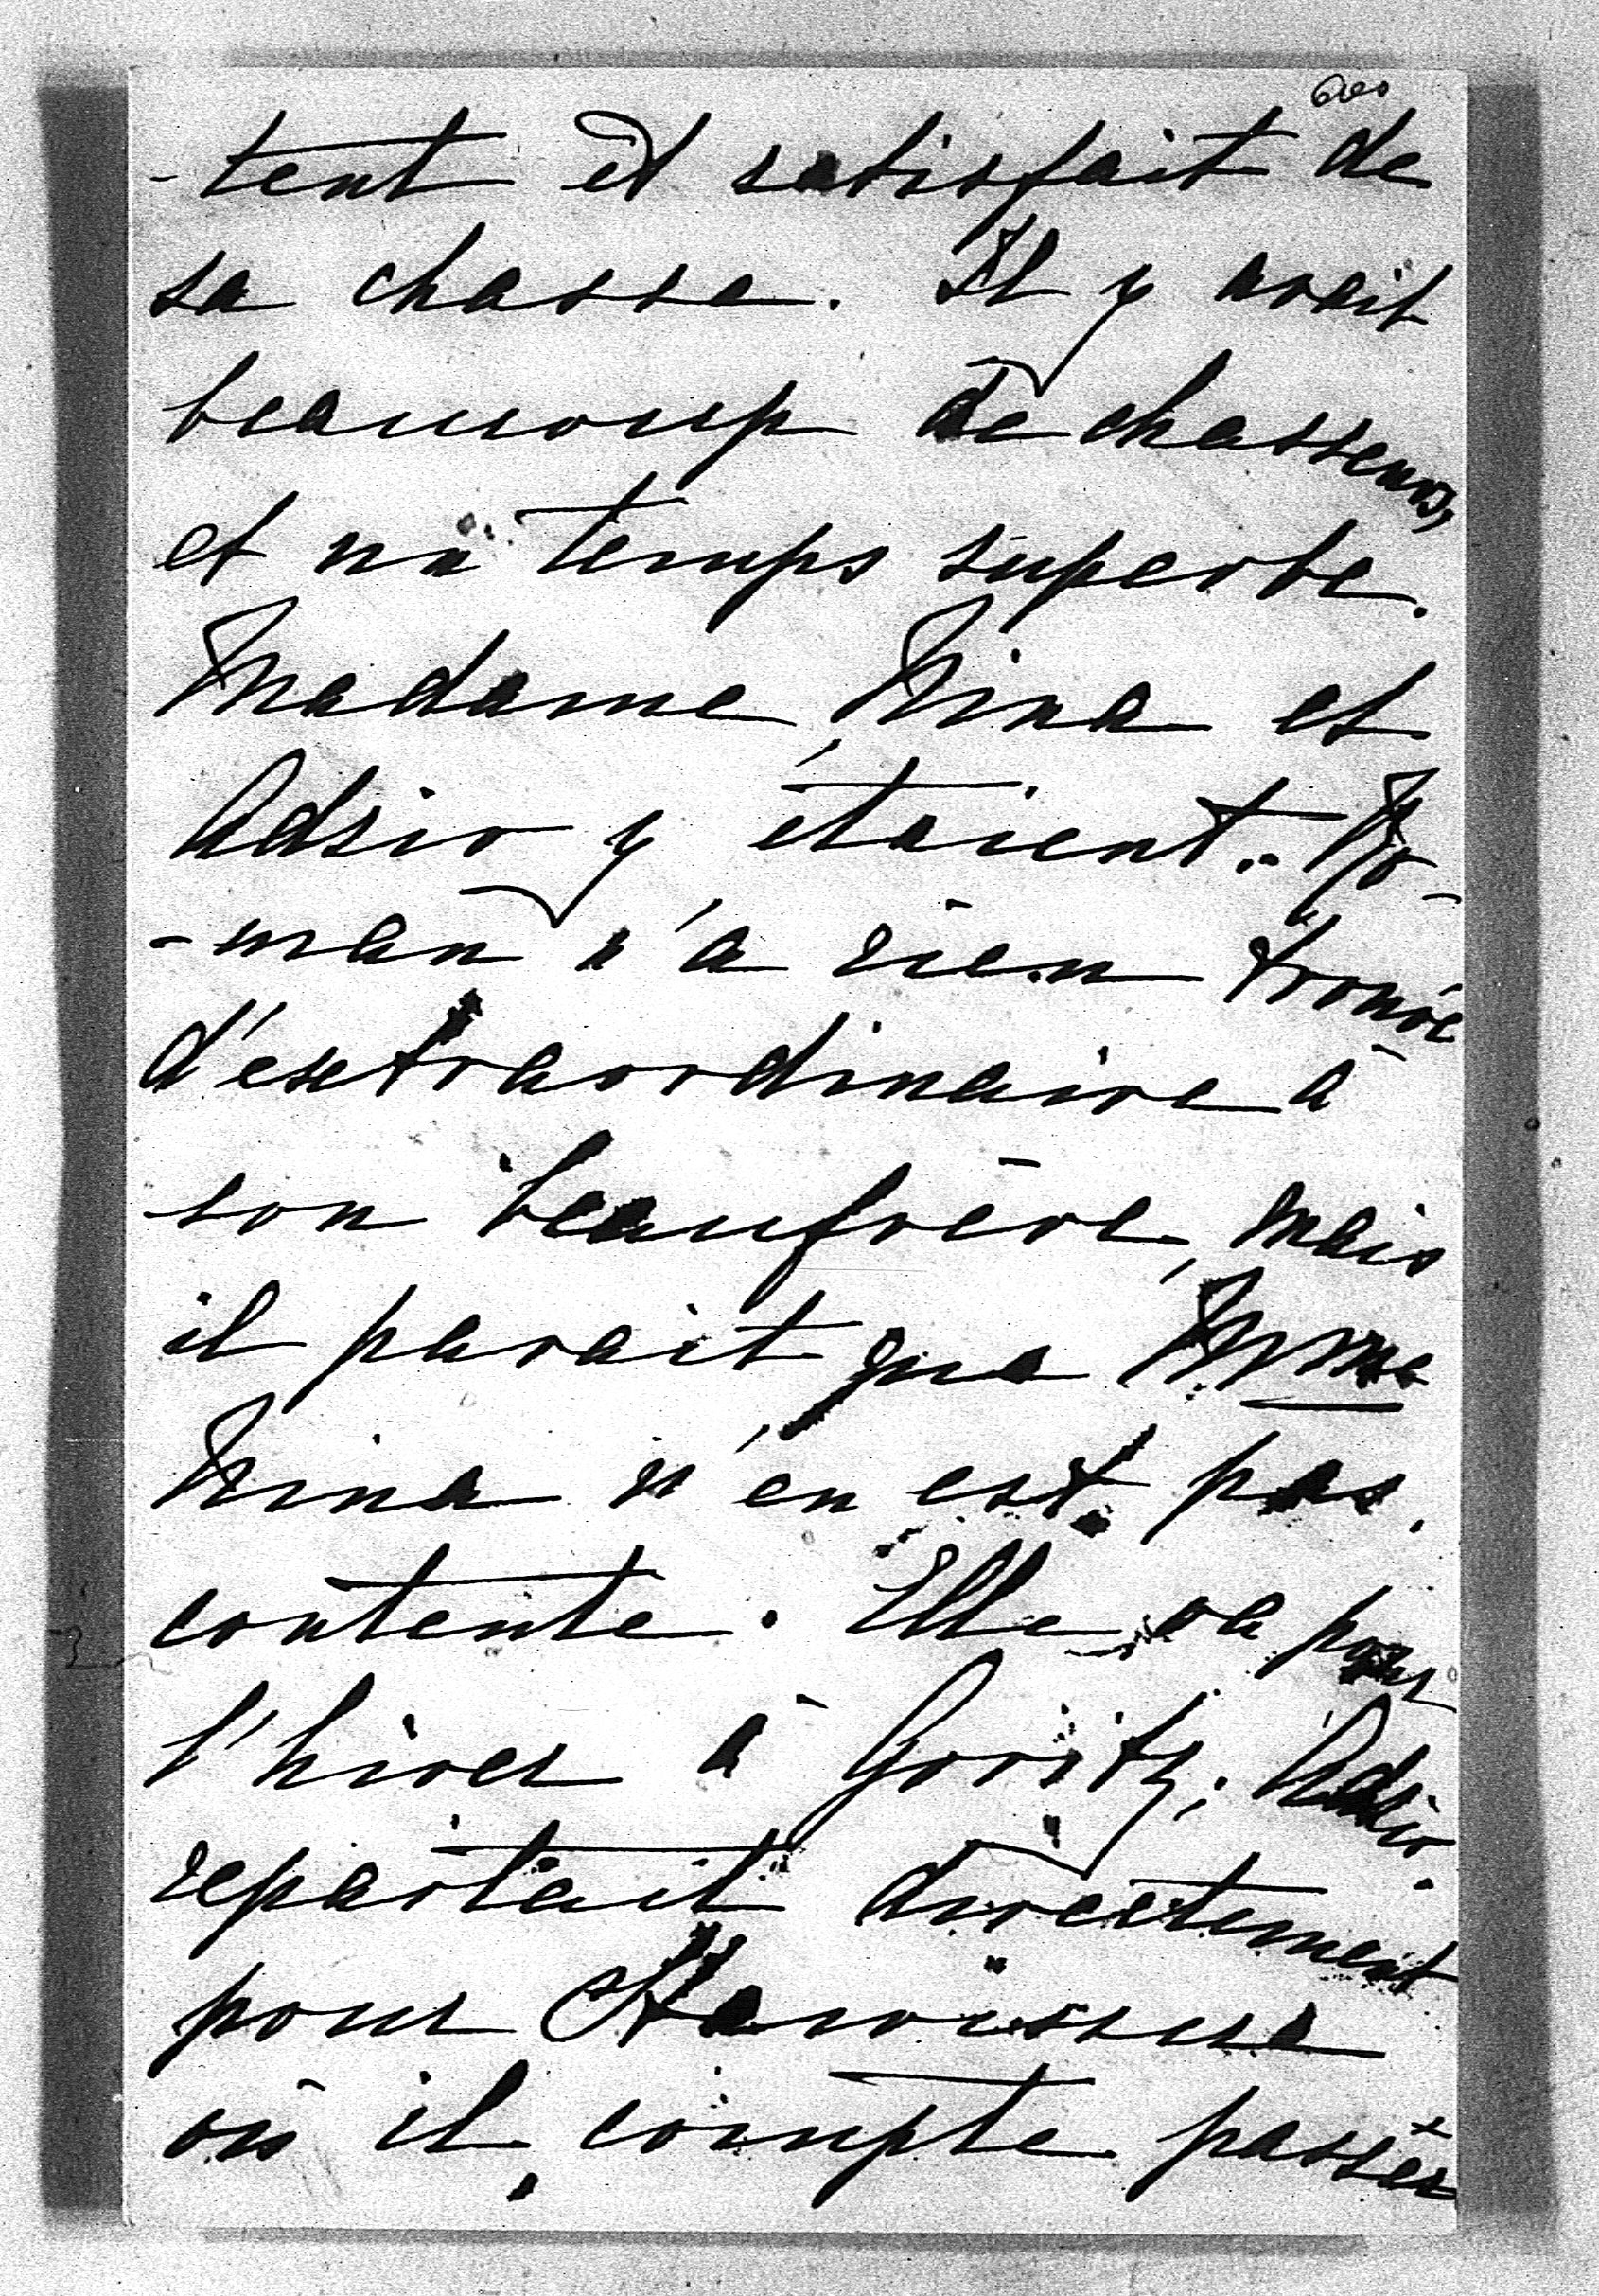 -tent et satisfait de
sa chasse. Il y avait
beaucoup de chasseurs,
et un temps superbe.
Madame Nina et
Adsio y étaient. Ro-
-man n'a rien trouvé
d'extraordinaire à
son beaufrère, mais
il parait que Mme
Nina n'en est pas
contente. Elle va pour
l'hiver à Goritz; Adsio
repartait directement
pour
où il compte passer